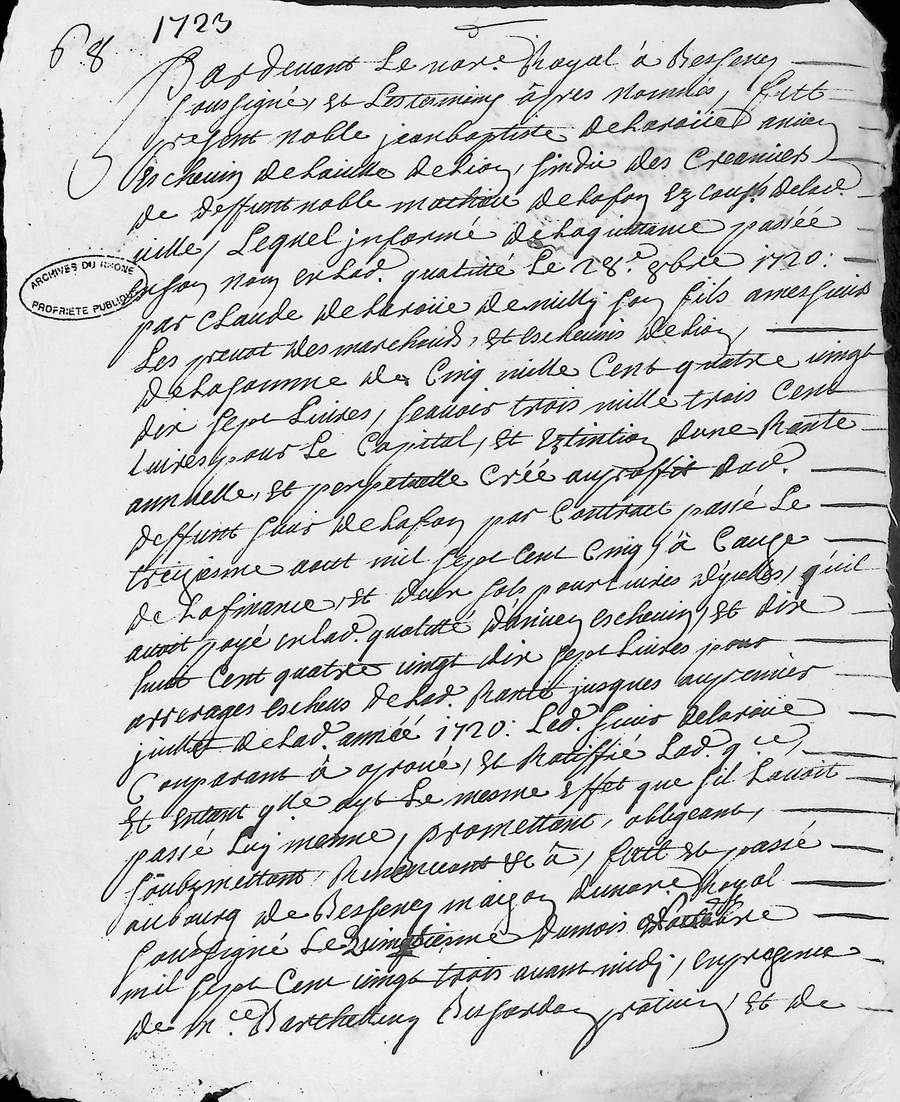 68 1723
Pardevant Le nore. Royal à Bessenay
soussigné, et Les tesmoins âpres Nommés, futt
present noble jean baptiste delaroüe ancien
Eschevin de la ville de Lion, sindic des Creanciers
de deffunt noble mathieu de Lafon Ex cons. de lad.
ville, Lequel informé de la quittance passée
a son nom en lad. qualitté Le 28e. 8bre 1720:
par claude delaroüe de milly son fils a messieurs
Les prevot des marchands, et eschevins de Lion,
de la somme de Cinq mille Cent quatre vingt
dix sept Livres, scavoir trois mille trois Cent
Livres pour Le Capital, et Extintion dune Rante
annuelle, et perpetuelle Créé au proffit dud.
deffunt sieur de Lafon par Contract passé Le
treiziesme aout mil sept Cent Cinq, à Cause
de La finance, et deux sols pour Livres d'ycelles, qu'il
avoit payé en lad. qualitté d'ancien eschevin, et dix
huit Cent quatre vingt dix sept Livres pour
arrerages escheus de lad. Rante jusques au premier
juillet de lad. année 1720: Led. sieur delaroüe
Comparant à aprouvé, et Ratiffié Lad. qce,
Et Entant qlle ayt Le mesme Effet que s'il L'avoit
passé Luy mesme, promettant, obligeant,
soubzmettant, Renonceant &c à, futt et passé
au bourg de Bessenay maison du nore. Royal
soussigné Le quinziesme du mois d'octobre
mil sept Cent vingt trois avant midy, en presence
de Barthelemy praticien, et de
ARCHIVES DU RHONE
PROPRIÉTÉ PUBLIQUE